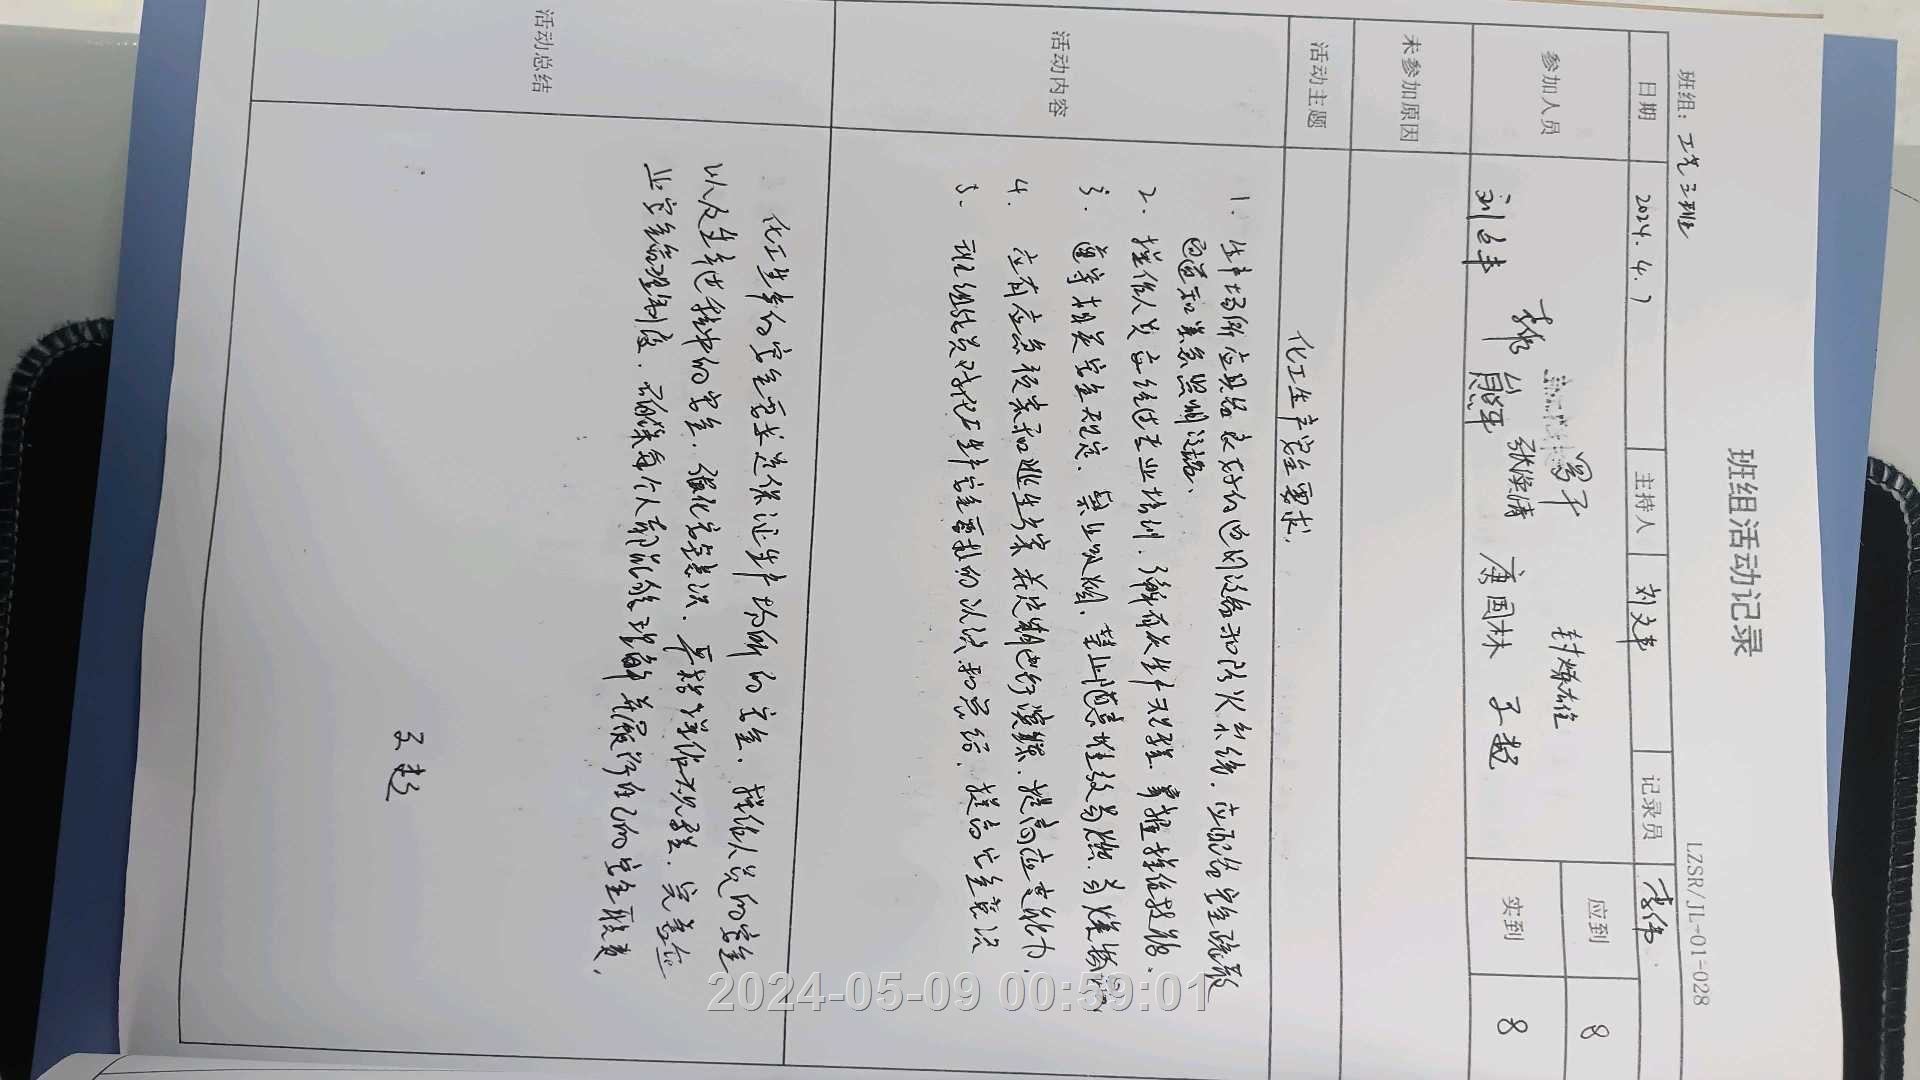 班组活动记录
LZSR/JL-01-028
班组：工艺三班
日期 2024.4.7 主持人 刘文革 记录员 李伟
参加人员
张焕清 康国林 王超
应到 8
实到 8
未参加原因
活动主题 化工生产安全要求.
活动内容
1. 生产场所应具备良好的通风设备和防火系统. 应配备安全疏散
通道和紧急照明设施、
2. 操作人员应经过专业培训. 了解有次生产规程. 掌握操作技能.
3. 遵守相关安全规定. 禁止吸烟. 禁止随意堆放易燃. 易爆物品,
4. 应有应急预案和逃生方案 并定期进行演练. 提高应变能力.
5. 班组成员对化工生产安全要求的认识和总结. 提高安全意识
活动总结
化工生产的安全要求是保证生产场所的安全. 操作人员的安全
以及生产过程中的安全. 强化安全意识. 严格操作规程. 完善企
业安全管理制度. 确保每个人都能够理解并履行自己的安全职责,
王超
2024-05-09 00:59:01